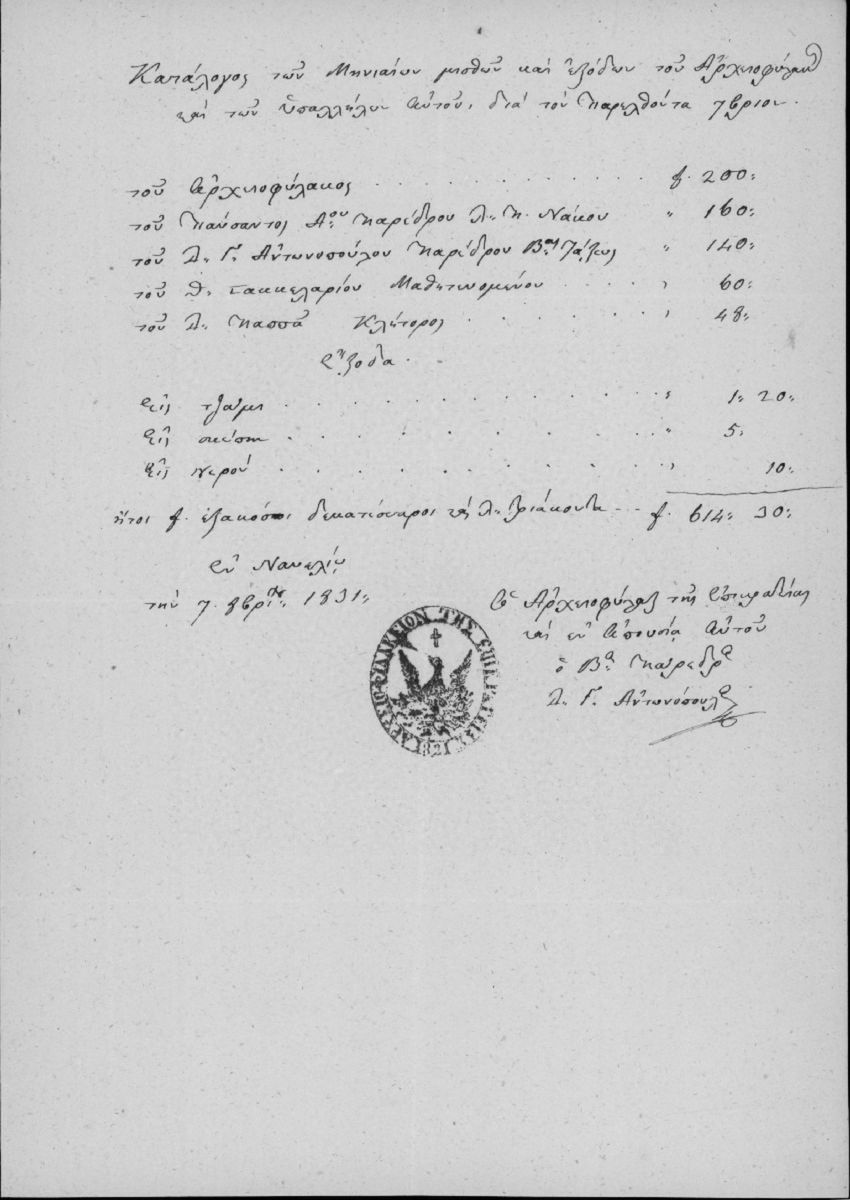 Κατάλογος τῶν Μηνιαίων μισθῶν καὶ ἐξόδων τοῦ Ἀρχειοφύλακος
καὶ τῶν ὑπαλλήλων αὐτοῦ, διὰ τὸν παρελθόντα 7βριον.
τοῦ ἀρχειοφύλακος . . . . . . . . . . . f. 200„
τοῦ παύσαντος Αου παρέδρου Λ. Π. Νάκου „ 160„
τοῦ Δ. Γ. Ἀντωνοπούλου παρέδρου Βας τάξεως „ 140„
τοῦ Θ. Σακκελαρίου Μαθητευομένου . . . . „ 60„
τοῦ Δ. Πασσᾶ Κλήτορος . . . . . . . „ 48„
Ἔξοδα.
Εἰς τζάμι . . . . . . . . . „ 1„ 20„
Εἰς . . . . . . . . . „ 5„
Εἰς νερόν . . . . . . . . . „ 10„
ἤτοι f. ἑξακόσιοι δεκατέσσαροι καὶ λ. τριάκοντα -- f. 614„ 30„
Ἐν Ναυπλίῳ
τὴν 7 8βρίου 1831„
Ὁ Ἀρχειοφύλαξ τῆς Ἐπικρατείας
καὶ ἐν ἀπουσίᾳ αὐτοῦ
ὁ Βος Πάρεδρος
Δ. Γ. Ἀντωνόπουλος
ΑΡΧΕΙΟΦΥΛΑΚΕΙΟΝ ΤΗΣ ΕΠΙΚΡΑΤΕΙΑΣ
1821